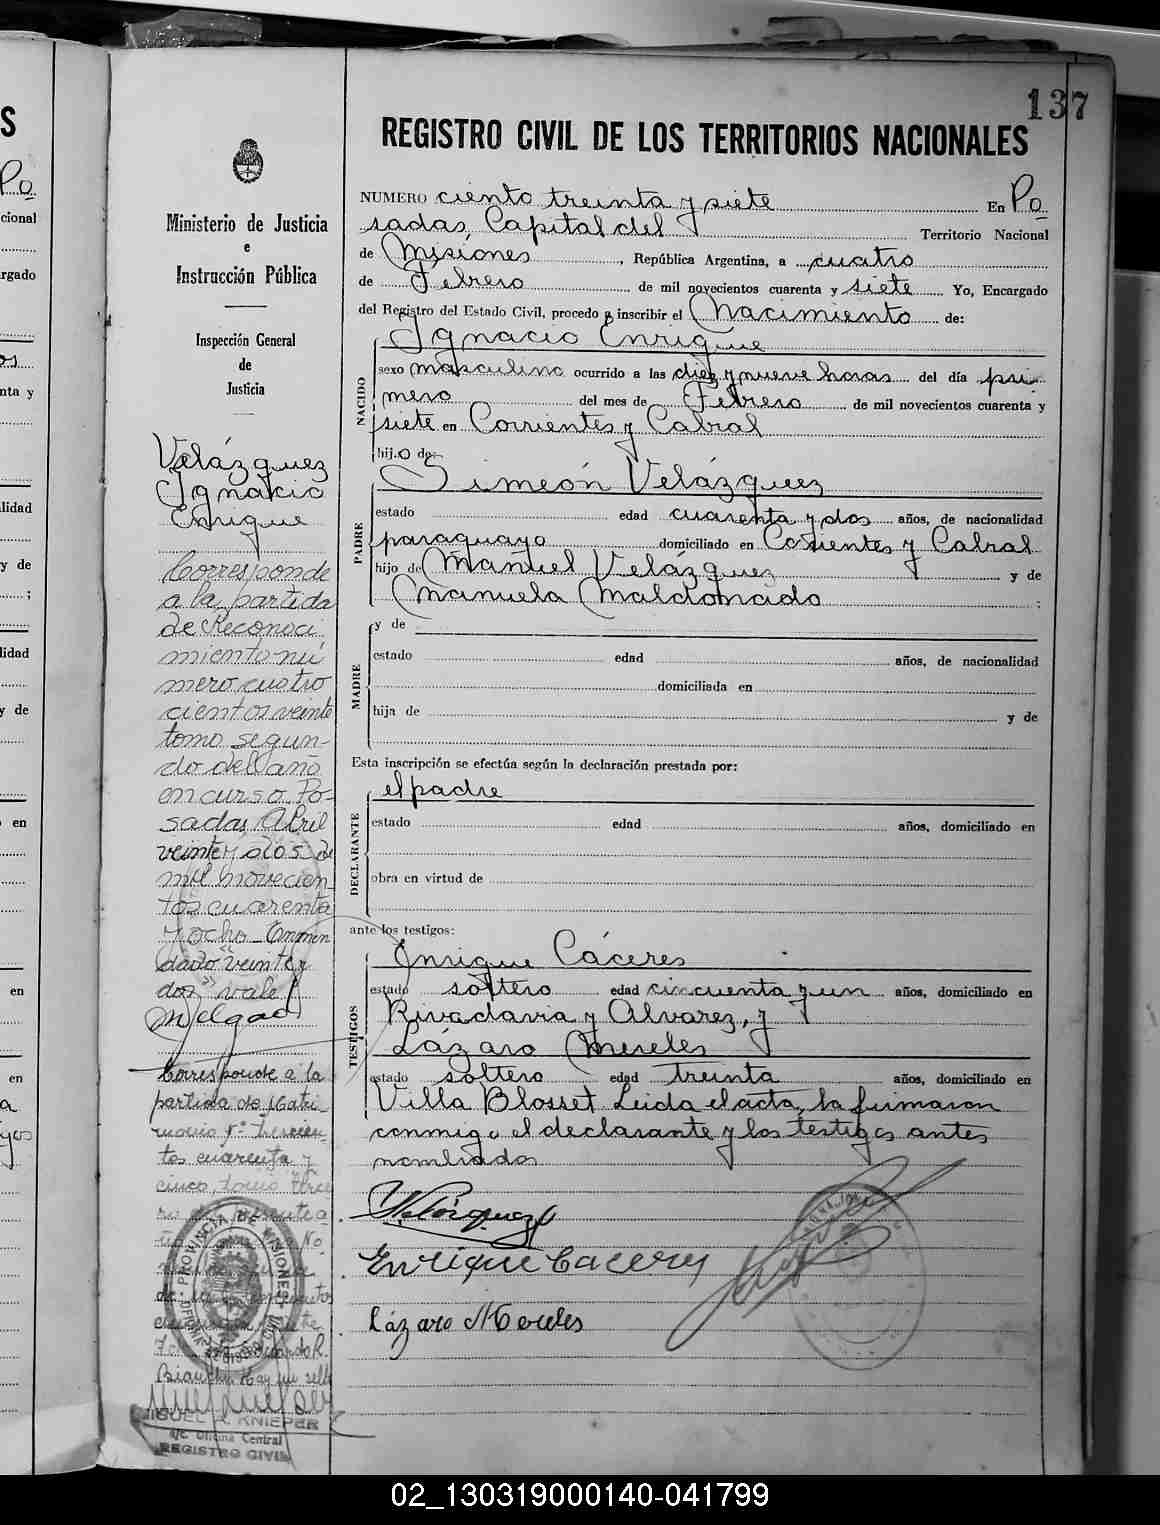 137
REGISTRO CIVIL DE LOS TERRITORIOS NACIONALES
Ministerio de Justicia
e
Instrucción Pública
Inspección General
de
Justicia
Velázquez
Ignacio
Enrique
Corresponde
a la partida
de Reconoci
miento nú
mero cuatro
cientos veinte
tomo segun-
do del año
en curso. Po-
sadas, Abril
veinte y dos de
mil novecien
tos cuarenta
y ocho_Enmen
dado "veinte y
dos" vale
Corresponde a la
partida de Matri-
monio nº trescien-
tos cuarenta y
cinco, tomo terce
PROVINCIA DE MISIONES
MIGUEL A. KNIEPER
a/c. Oficina Central
REGISTRO CIVIL
NUMERO ciento treinta y siete En Po
sadas, Capital del Territorio Nacional
de Misiones, República Argentina, a cuatro
de Febrero de mil novecientos cuarenta y siete Yo, Encargado
del Registro del Estado Civil, procedo a inscribir el Nacimiento de:
NACIDO
Ignacio Enrique
sexo masculino ocurrido a las diez y nueve horas del día pri-
mero del mes de Febrero de mil novecientos cuarenta y
siete en Corrientes y Cabral
hijo de
PADRE
Simeón Velázquez
estado edad cuarenta y dos años, de nacionalidad
paraguayo domiciliado en Corrientes y Cabral
hijo de Manuel Velázquez y de
Manuela Maldonado ;
MADRE
y de
estado edad años, de nacionalidad
domiciliada en
hija de y de
Esta inscripción se efectúa según la declaración prestada por:
DECLARANTE
el padre
estado edad años, domiciliado en
obra en virtud de
ante los testigos:
TESTIGOS
Enrique Cáceres
estado soltero edad cincuenta y un años, domiciliado en
Rivadavia y Alvarez, y
Lázaro Mereles
estado soltero edad treinta años, domiciliado en
Villa Blosset Leida el acta, la firmaron
conmigo el declarante y los testigos antes
nombrados
Velázquez
Enrique Caceres
Lázaro Mereles
02_130319000140-041799